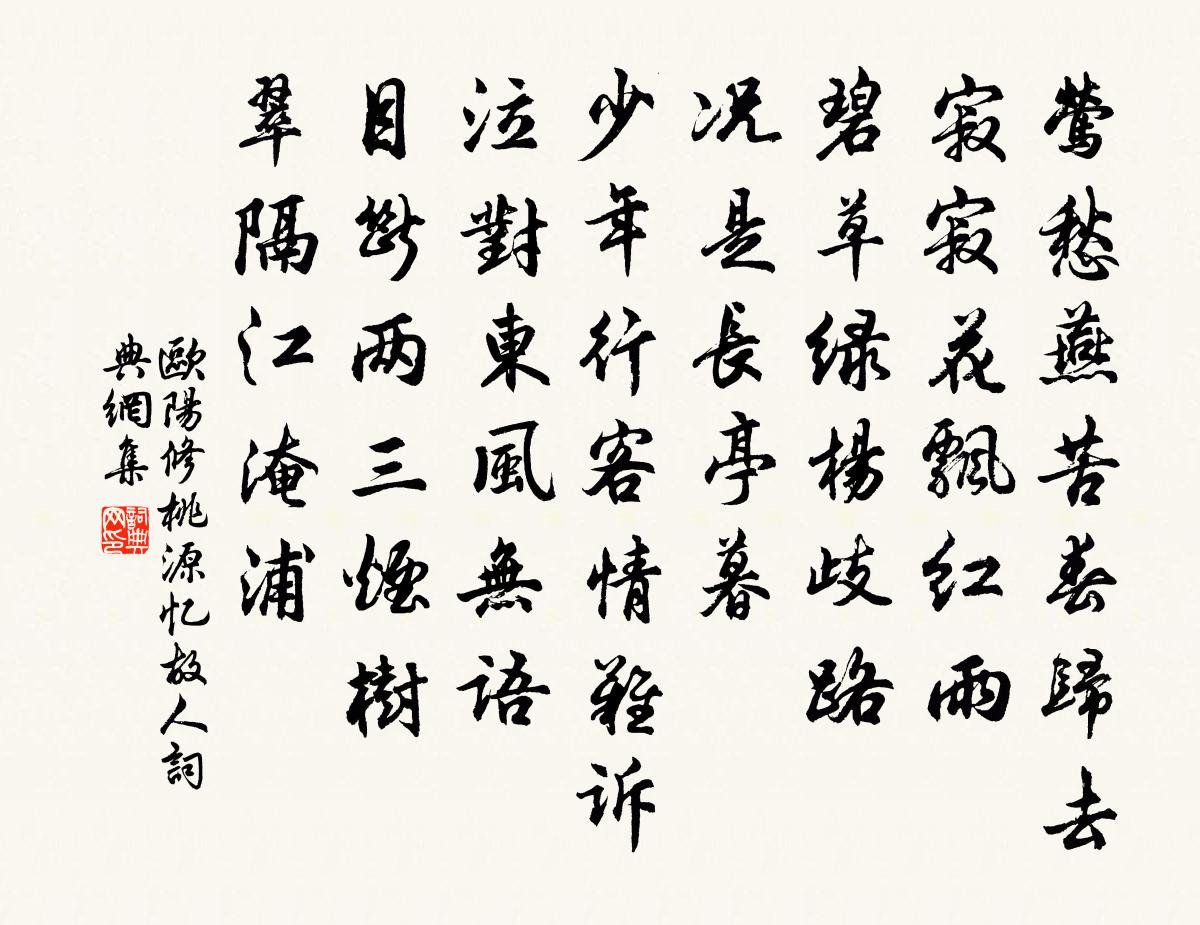 鶯愁燕苦春歸去
寂寂花飄紅雨
碧草绿楊歧路
况是長亭暮
少年行客情難訴
泣對東風無語
目斷两三煙樹
翠隔江淹浦
歐陽修桃源忆故人詞
典網集
詞典
网印